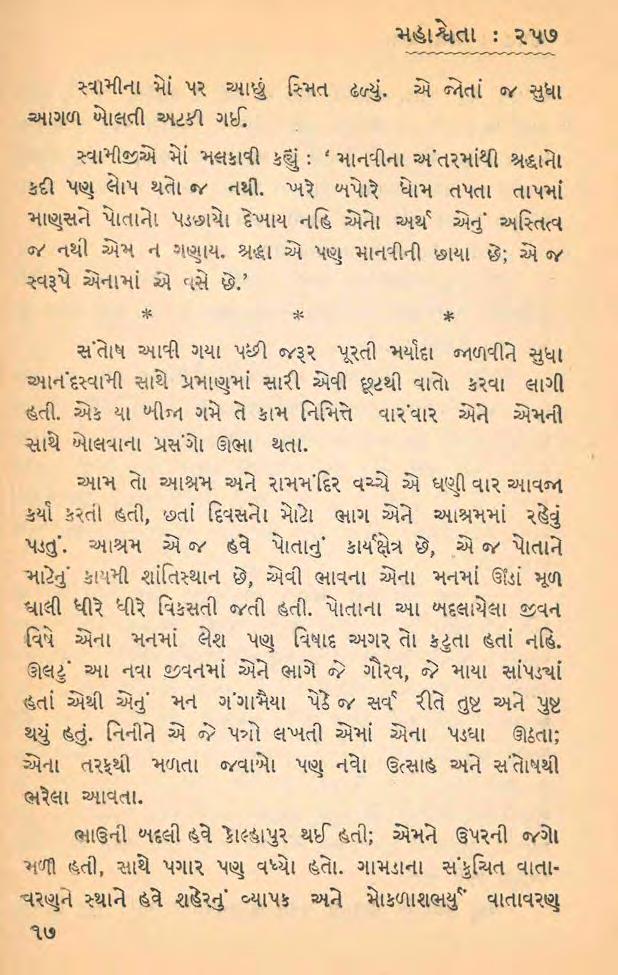 મહાશ્વેતા : ૨૫૭
સ્વામીના મોં પર આછું સ્મિત ઢળ્યું. એ જોતાં જ સુધા
આગળ બોલતી અટકી ગઈ.
સ્વામીજીએ મોં મલકાવી કહ્યું : ‘માનવીના અંતરમાંથી શ્રદ્ધાનો
કદી પણ લોપ થતો જ નથી. ખરે બપોરે ધોમ તપતા તાપમાં
માણસને પોતાનો પડછાયો દેખાય નહિ એનો અર્થ એનું અસ્તિત્વ
જ નથી એમ ન ગણાય. શ્રદ્ધા એ પણ માનવીની છાયા છે; એ જ
સ્વરૂપે એનામાં એ વસે છે.’
* * *
સંતોષ આવી ગયા પછી જરૂર પૂરતી મર્યાદા જાળવીને સુધા
આનંદસ્વામી સાથે પ્રમાણમાં સારી એવી છૂટથી વાતો કરવા લાગી
હતી. એક યા બીજા ગમે તે કામ નિમિત્તે વારંવાર એને એમની
સાથે બોલવાના પ્રસંગો ઊભા થતા.
આમ તો આશ્રમ અને રામમંદિર વચ્ચે એ ઘણી વાર આવજા
કર્યા કરતી હતી, છતાં દિવસનો મોટો ભાગ એને આશ્રમમાં રહેવું
પડતું. આશ્રમ એ જ હવે પોતાનું કાર્યક્ષેત્ર છે, એ જ પોતાને
માટેનું કાયમી શાંતિસ્થાન છે, એવી ભાવના એના મનમાં ઊંડાં મૂળ
ઘાલી ધીરે ધીરે વિકસતી જતી હતી. પોતાના આ બદલાયેલા જીવન
વિષે એના મનમાં લેશ પણ વિષાદ અગર તો કટુતા હતાં નહિ.
ઊલટું આ નવા જીવનમાં એને ભાગે જે ગૌરવ, જે માયા સાંપડ્યાં
હતાં એથી એનું મન ગંગામૈયા પેઠે જ સર્વ રીતે તુષ્ટ અને પુષ્ટ
થયું હતું. નિનીને એ જે પત્રો લખતી એમાં એના પડઘા ઊઠતા;
એના તરફથી મળતા જવાબો પણ નવો ઉત્સાહ અને સંતોષથી
ભરેલા આવતા.
ભાઉની બદલી હવે કોલ્હાપુર થઈ હતી; એમને ઉપરની જગો
મળી હતી, સાથે પગાર પણ વધ્યો હતો. ગામડાના સંકુચિત વાતા-
વરણને સ્થાને હવે શહેરનું વ્યાપક અને મોકળાશભર્યું વાતાવરણ
૧૭